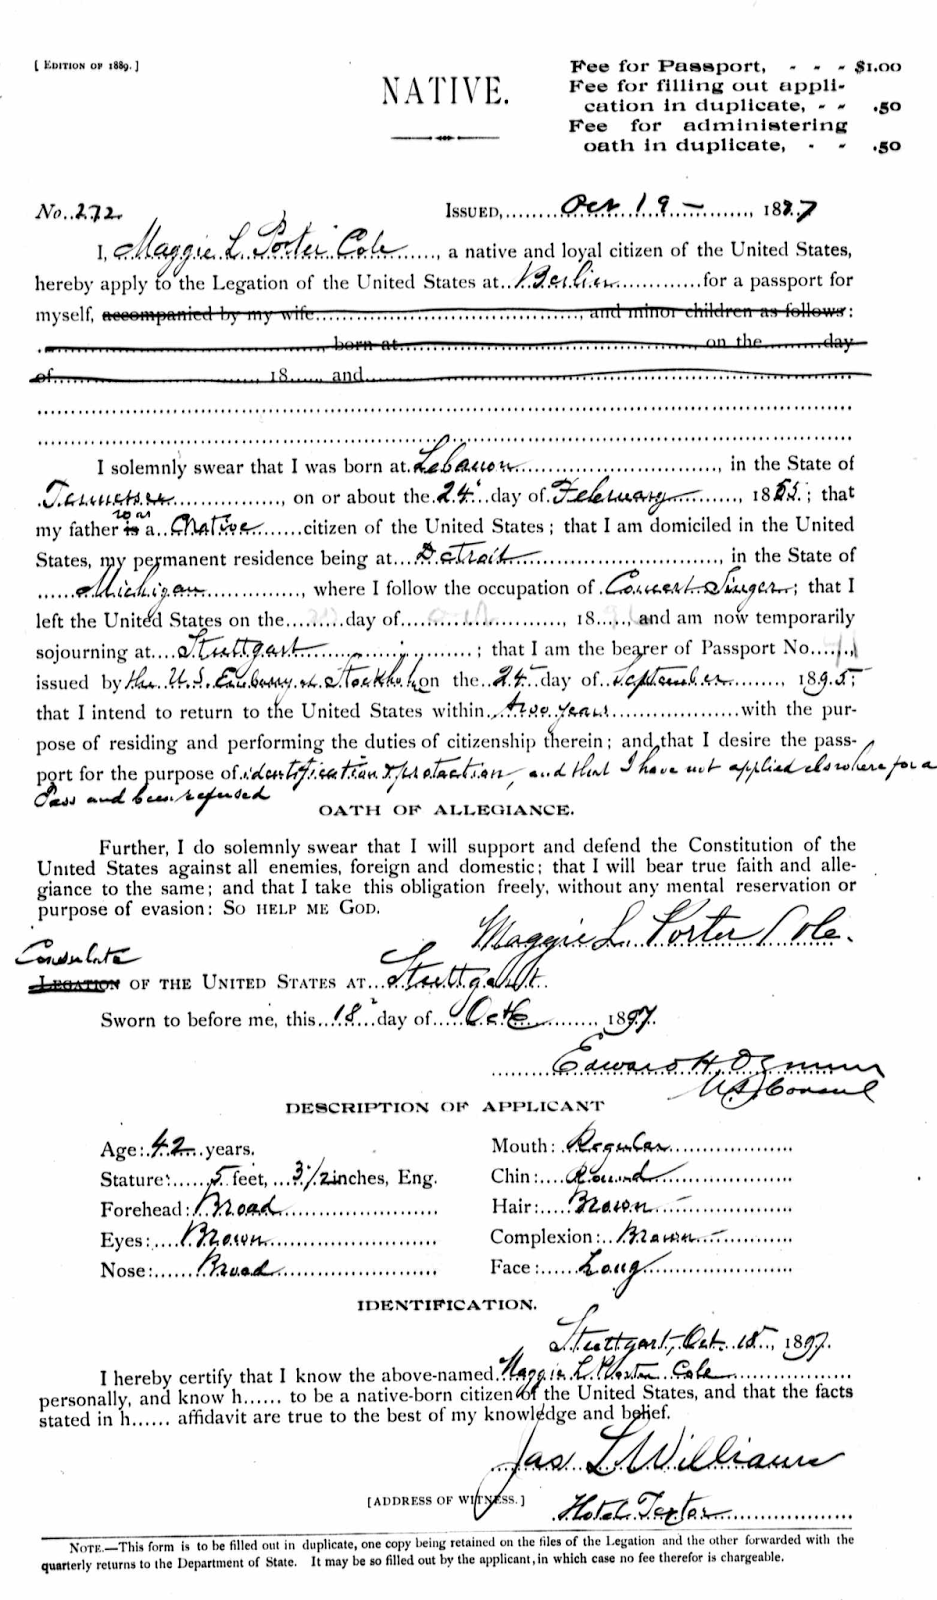 [ EDITION OF 1889. ]
NATIVE.
Fee for Passport, - - - $1.00
Fee for filling out appli-
cation in duplicate, - - .50
Fee for administering
oath in duplicate, - - .50
No. 272. ISSUED, Oct 19 -, 1897
I, Maggie L Porter Cole, a native and loyal citizen of the United States,
hereby apply to the Legation of the United States at Berlin for a passport for
myself, accompanied by my wife, and minor children as follows:
born at on the day
of, 18, and
I solemnly swear that I was born at Lebanon, in the State of
Tennessee, on or about the 24 day of February, 1855; that
was
my father is a Native citizen of the United States; that I am domiciled in the United
States, my permanent residence being at Detroit, in the State of
Michigan, where I follow the occupation of Concert Singer; that I
left the United States on the day of, 18, and am now temporarily
sojourning at Stuttgart; that I am the bearer of Passport No.
issued by the U.S. Embassy at Stockholm on the 24 day of September, 1895;
that I intend to return to the United States within two years with the pur-
pose of residing and performing the duties of citizenship therein; and that I desire the pass-
port for the purpose of identification & protection, and that I have not applied elsewhere for a
Pass and been refused
OATH OF ALLEGIANCE.
Further, I do solemnly swear that I will support and defend the Constitution of the
United States against all enemies, foreign and domestic; that I will bear true faith and alle-
giance to the same; and that I take this obligation freely, without any mental reservation or
purpose of evasion: SO HELP ME GOD.
Maggie L. Porter Cole.
Consulate
LEGATION OF THE UNITED STATES AT Stuttgart.
Sworn to before me, this 18 day of Oct, 1897.
Edward H. Ozmun
U.S. Consul
DESCRIPTION OF APPLICANT
Age: 42 years. Mouth: Regular
Stature: 5 feet, 3 1/2 inches, Eng. Chin: Round
Forehead: Broad Hair: Brown -
Eyes: Brown Complexion: Brown -
Nose: Broad Face: Long
IDENTIFICATION.
Stuttgart, Oct. 18, 1897.
I hereby certify that I know the above-named Maggie L Porter Cole
personally, and know h...... to be a native-born citizen of the United States, and that the facts
stated in h...... affidavit are true to the best of my knowledge and belief.
Jas L Williams
[ADDRESS OF WITNESS.] Hotel Textor
NOTE.—This form is to be filled out in duplicate, one copy being retained on the files of the Legation and the other forwarded with the
quarterly returns to the Department of State. It may be so filled out by the applicant, in which case no fee therefor is chargeable.